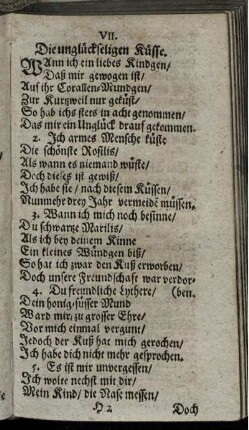 VII.
Die unglückseligen Küsse.
Wann ich ein liebes Kindgen/
Daß mir gewogen ist/
Auf ihr Corallen-Mundgen/
Zur Kurtzweil nur geküst/
So hab ichs stets in acht genommen/
Das mir ein Unglück drauf gekommen.
2. Ich armes Mensche küste
Die schönste Rosilis/
Als wann es niemand wüste/
Doch dieses ist gewiß/
Ich habe sie/ nach diesem Küssen/
Nunmehr drey Jahr vermeidē müssen.
3. Wann ich mich noch besinne/
Du schwartze Marilis/
Als ich bey deinem Kinne
Ein kleines Wündgen biß/
So hat ich zwar den Kuß erworben/
Doch unsere Freundschafft war verdor-
4. Du freundliche Lythere/ (ben.
Dein honig-süsser Mund
Ward mir zu grosser Ehre/
Vor mich einmal vergunt/
Jedoch der Kuß hat mich gerochen/
Ich habe dich nicht mehr gesprochen.
5. Es ist mir unvergessen/
Ich wolte nechst mit dir/
Mein Kind/ die Nase messen/
H 2 Doch